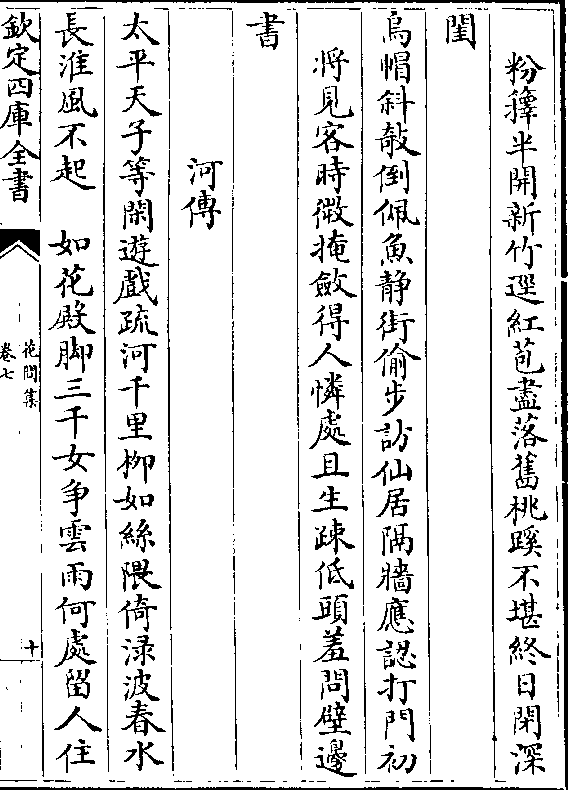 粉籜半開新竹逕紅苞盡落舊桃蹊不堪終日閉深
閨
烏帽斜欹倒佩魚静街偷步訪仙居隔牆應認打門初
將見客時微掩斂得人憐處且生疎低頭羞問壁邊
書
河傳
太平天子等閑遊戲疏河千里柳如絲隈倚渌波春水
長淮風不起　如花殿脚三千女争雲雨何處留人住
欽定四庫全書
花間集
卷七
十